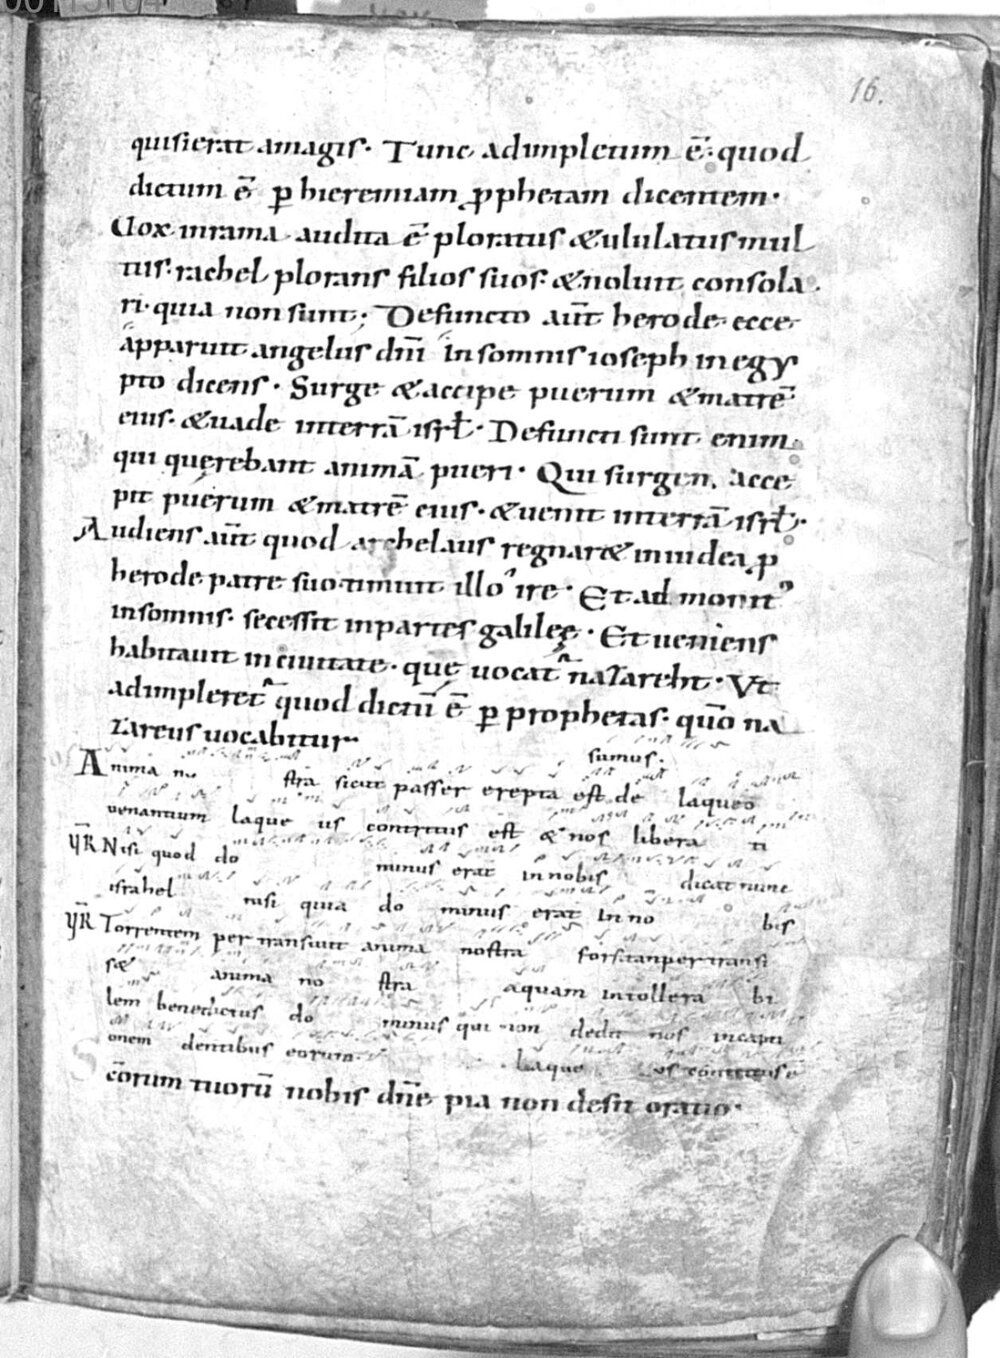 16.
quisierat amagis. Tunc adimpletum ē. quod
dictum ē ꝑ hieremiam ꝓphetam dicentem.
Uox inrama audita ē ploratus &ululatus mul
tus. rachel plorans filios suos. &noluit consola
ri. quia non sunt; Defuncto aūt herode ecce
apparuit angelus dn̄i insomnis ioseph in egy
pto dicens. Surge &accipe puerum &matrē
eius. &uade interrā isrł. Defuncti sunt enim
qui querebant animā pueri. Qui surgen. acce
pit puerum &matrē eius. &uenit interrā isrł.
Audiens aūt quod archelaus regnar& iniudea ꝓ
herode patre suo timuit illo ire. Et ad monit᾿
insomnis. secessit inpartes galileę. Et ueniens
habitauit in ciuitate. quę uocat᾿ nazareht. Vt
adimpleret᾿ quod dictū ē ꝑ prophetas. qūo na
zareus uocabitur.
sumus.
Anima n. stra sicut passer erepta est de laqueo
uenantium laque us contritus est & nos libera ti
ỹR Nisi quod do minus erat innobis dicat nunc
israhel nisi quia do minus erat Inno bis
ỹR Torrentem pertransiuit anima nostra forsitanpertransi
s& anima no stra aquam intollera bi
lem benedictus do minus qui non dedit nos incapti
onem dentibus eorum. Laque us contritus ē
S c̄orum tuorū nobis dn̄e pia non desit oratio.